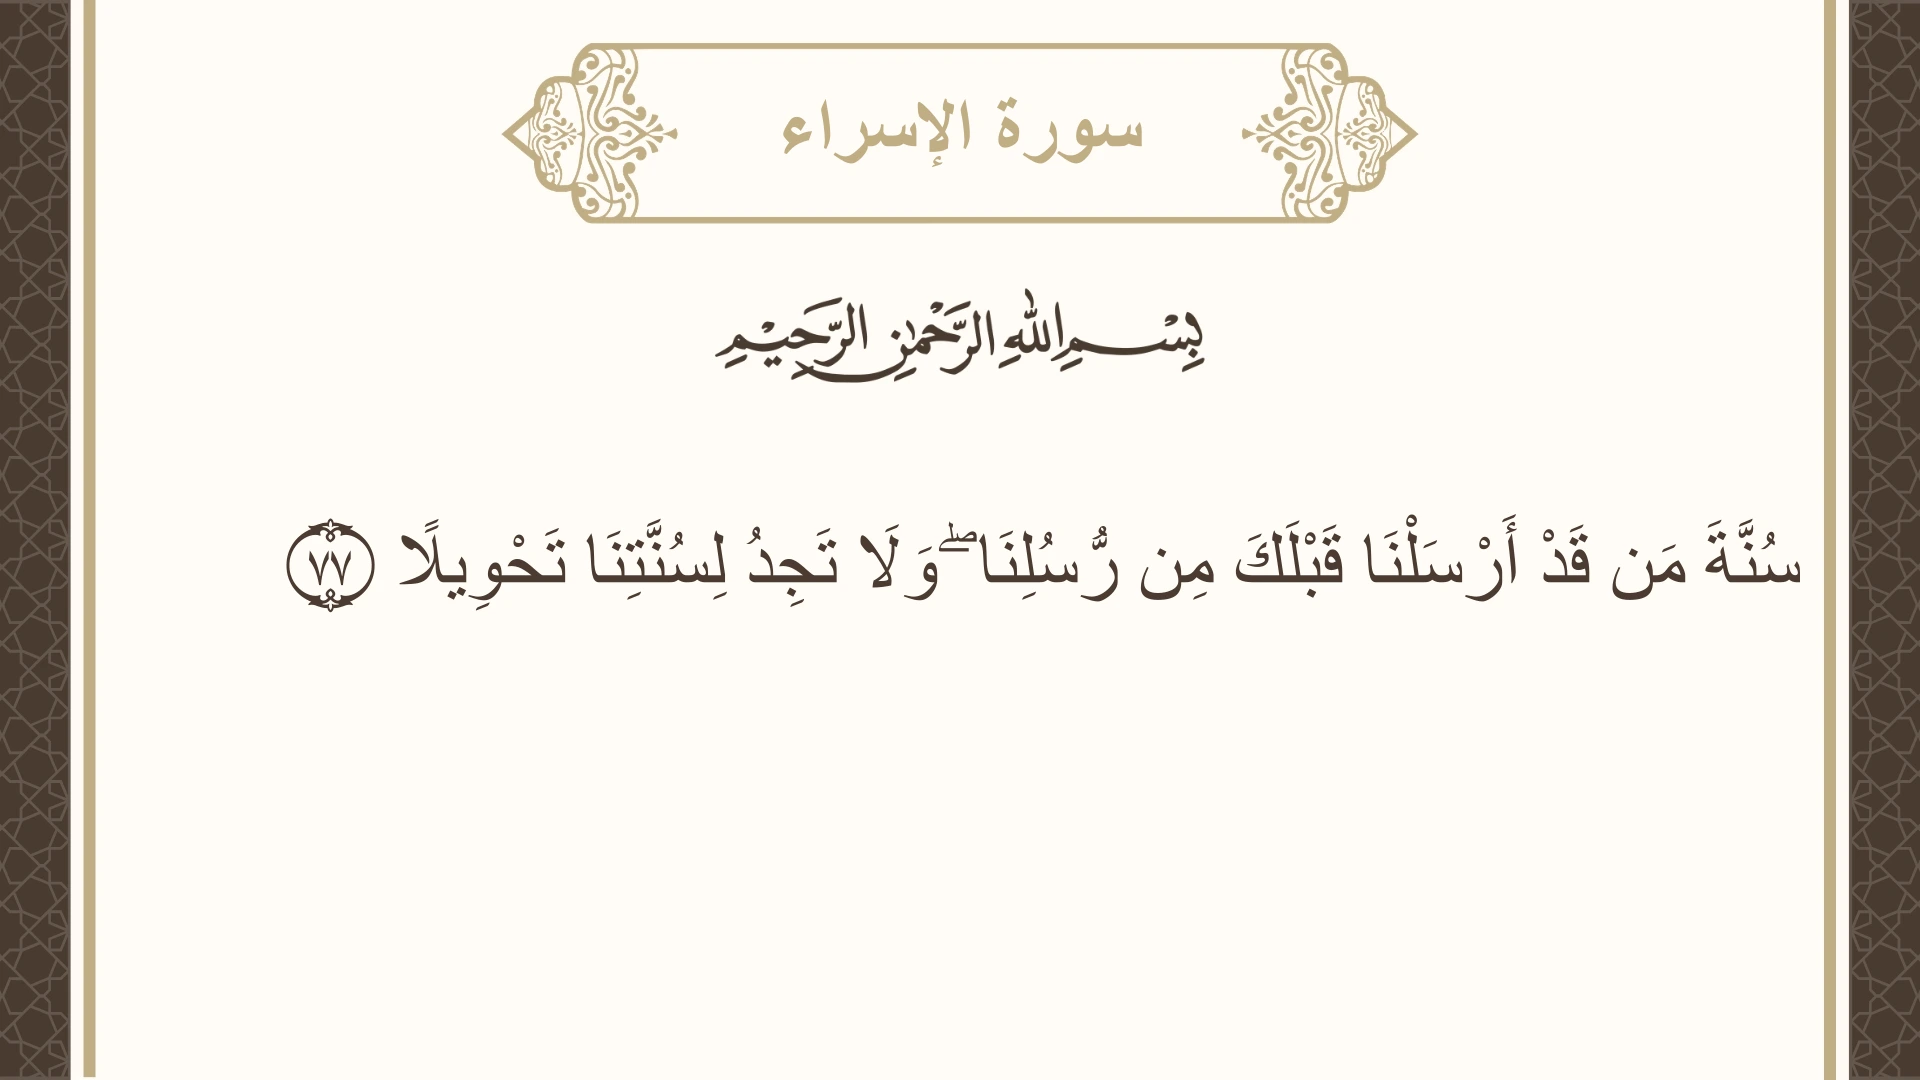 سورة الإسراء
بِسْمِ اللهِ الرَّحْمٰنِ الرَّحِيْمِ
سُنَّةَ مَن قَدْ أَرْسَلْنَا قَبْلَكَ مِن رُّسُلِنَا ۖ وَلَا تَجِدُ لِسُنَّتِنَا تَحْوِيلًا ٧٧